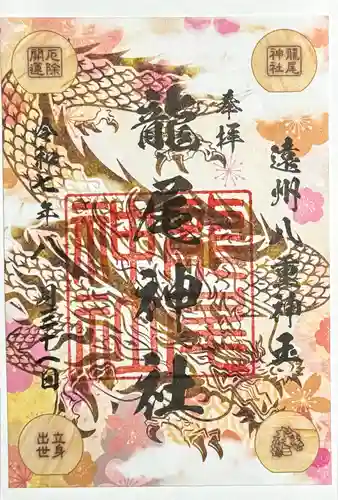 龍尾神社
厄除開運
奉拝
遠州八重神玉
龍尾神社
令和七年八月三十一日
龍尾神社
立身出世